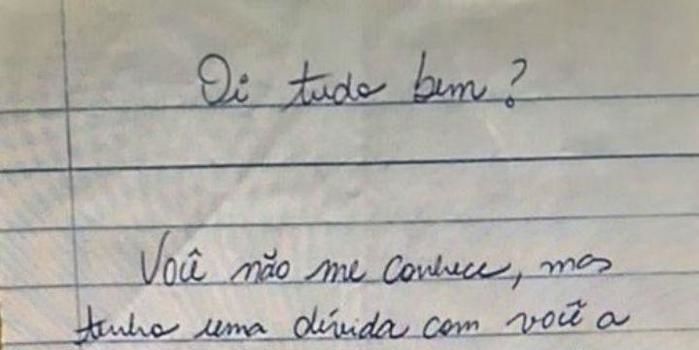 Oi tudo bem?
Você não me conhece, mas
tenho uma dívida com você a